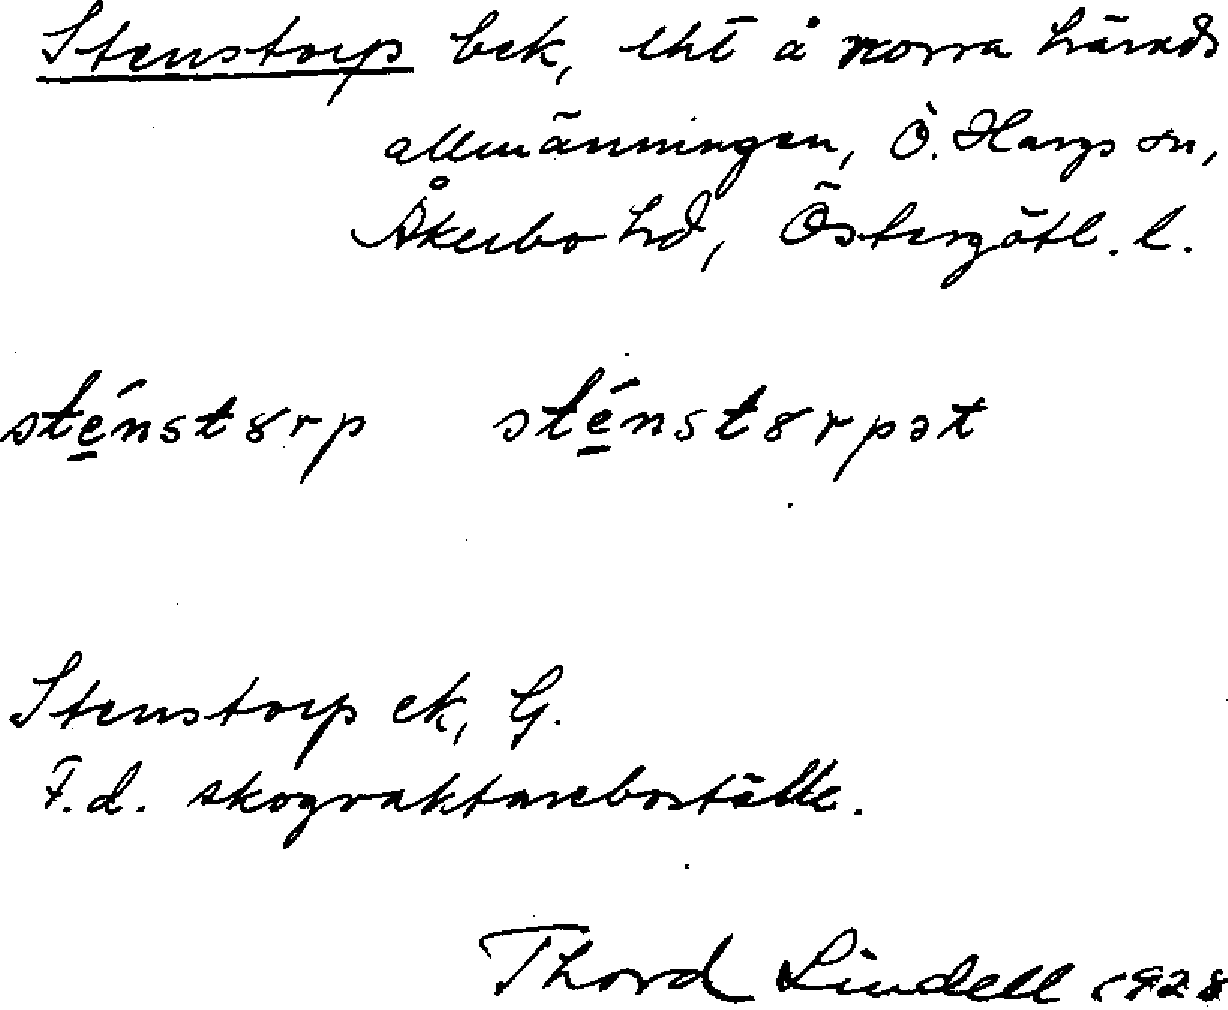 Stenstorp bek, lht å norra härads
allmänningen, Ö. Hargs sn,
Åkerbo hd, Östergötl. l.
sténstȣrp sténstȣrpət
Stenstorp ek, G.
F.d. skogvaktareboställe.
Thord Lindell 1928